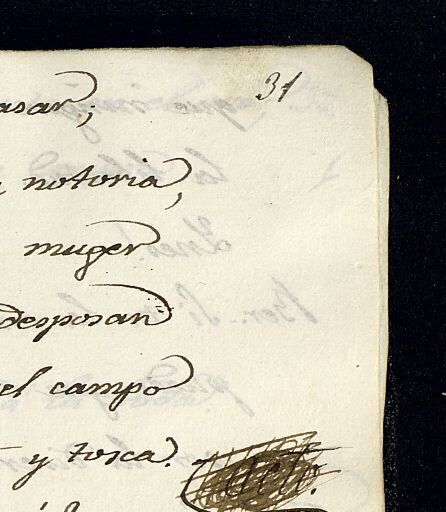 31
asar;
notoria,
muger
desposan
el campo
y tosca.